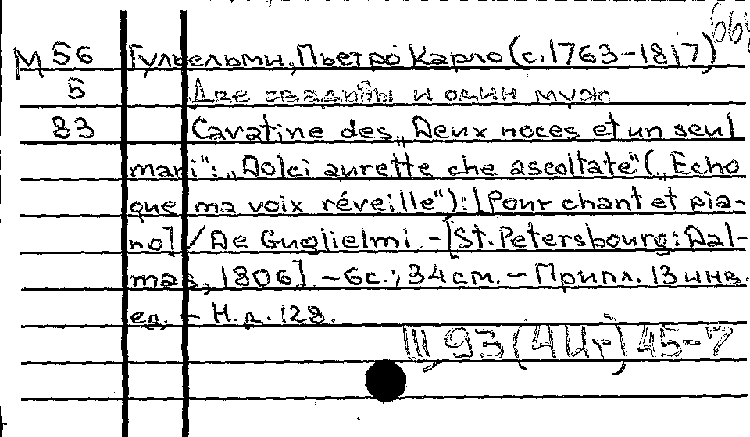 М 56 Гульельми, Пьетро Карло (с. 1763-1817)
5 Две свадьбы и один муж
83 Cavatine des „Deux noces et un seul
mari": „Dolci aurette che ascoltate" („Echo
que ma voix réveille"): [Pour chant et pia-
no] / De Guglielmi. - [St. Petersbourg: Dal-
mas, 1806]. - 6 с.; 34 см. - Припл. 13 инв.
ед. - Н. д. 128.
III, 93 (4Ит) 45-7